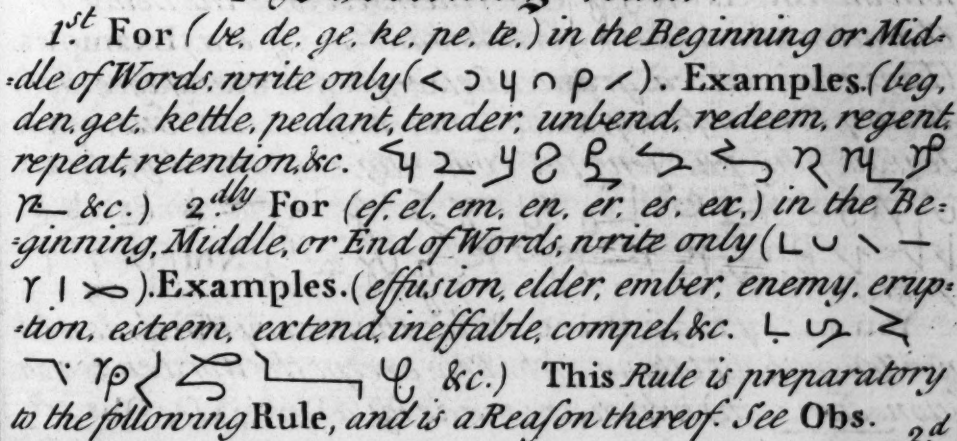 1.st For (be, de, ge, ke, pe, te,) in the Beginning or Mid=
=dle of Words, write only ( ). Examples. (beg,
den, get, kettle, pedant, tender, unbend, redeem, regent,
repeat, retention, &c.
&c.) 2.dly For (ef, el, em, en, er, es, ex,) in the Be=
=ginning, Middle, or End of Words, write only (
). Examples. (effusion, elder, ember, enemy, erup=
=tion, esteem, extend, ineffable, compel, &c.
&c.) This Rule is preparatory
to the following Rule, and is a Reaſon thereof. See Obs. 2d